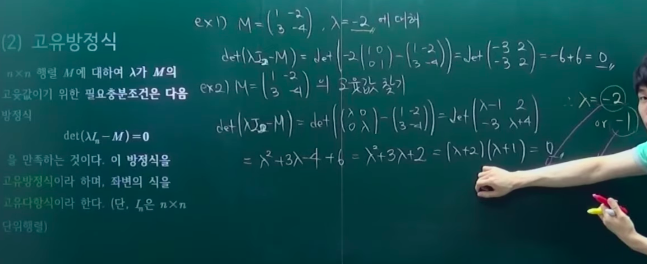 (2) 고유방정식
n×n 행렬 M에 대하여 λ가 M의
고윳값이기 위한 필요충분조건은 다음
방정식
det(λIₙ−M)=0
을 만족하는 것이다. 이 방정식을
고유방정식이라 하며, 좌변의 식을
고유다항식이라 한다. (단, Iₙ은 n×n
단위행렬)
ex1) M=(1 -2 / 3 -4), λ=-2 에 대해
det(λI₂-M)=det(-2(1 0 / 0 1)-(1 -2 / 3 -4))=det(-3 2 / -3 2)=-6+6=0
ex2) M=(1 -2 / 3 -4) 의 고윳값 찾기
det(λI₂-M)=det((λ 0 / 0 λ)-(1 -2 / 3 -4))=det(λ-1 2 / -3 λ+4)
=λ²+3λ-4+6=λ²+3λ+2=(λ+2)(λ+1)=0
∴ λ=-2
or -1